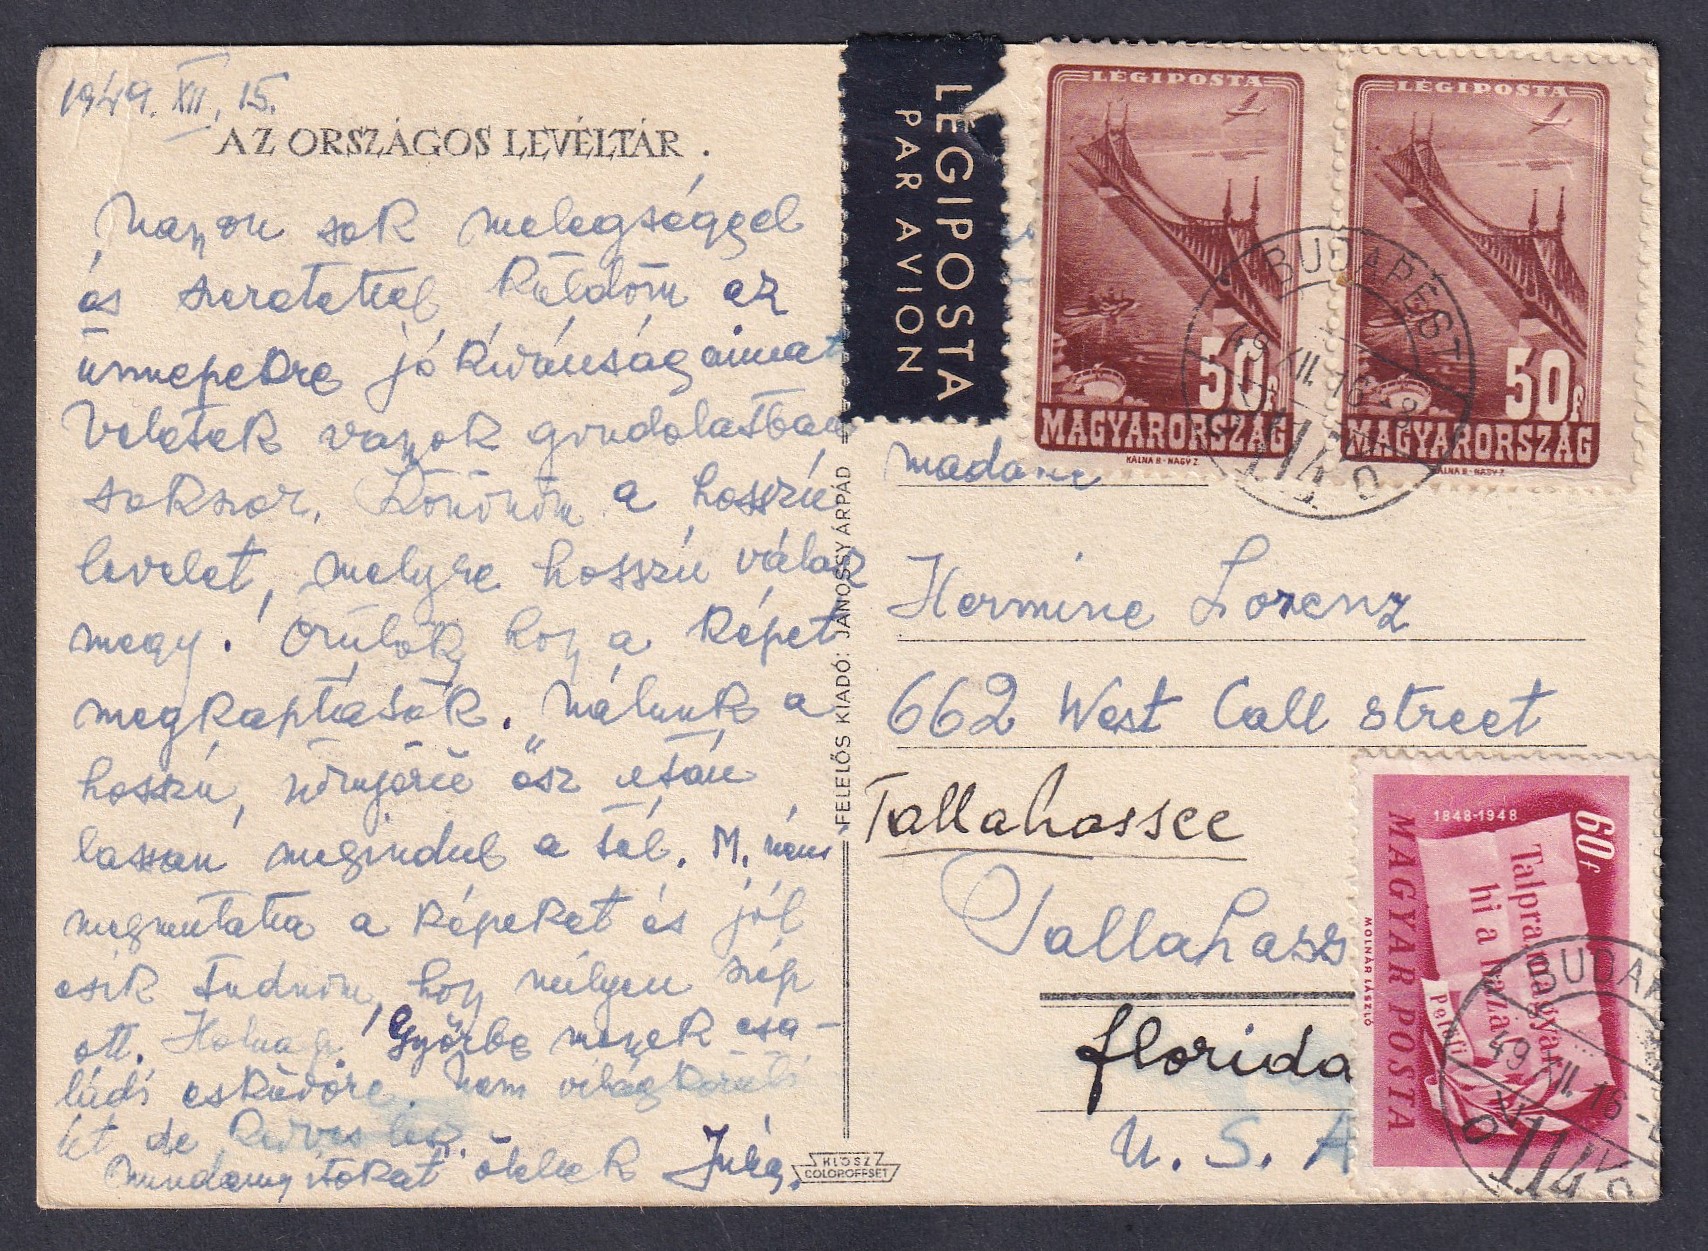 1949. XII, 15.
AZ ORSZÁGOS LEVÉLTÁR.
Nagyon sok melegséggel
és szeretettel küldöm az
ünnepekre jókívánságaimat
Veletek vagyok gondolatban
sokszor. Köszönöm a hosszú
levelet, melyre hosszú válasz
megy. Örülök, hogy a képet
megkaptátok. Nálunk a
hosszú, gyönyörű ősz után
lassan megindul a tél. M. néni
megmutatta a képeket és jól
esik tudnom, hogy milyen szép
ott. Holnap Győrbe megyek csa-
ládi esküvőre. Nem világkörüli
út de kedves lesz.
Mindannyitokat ölellek
LÉGIPOSTA
PAR AVION
LÉGIPOSTA
50f
MAGYARORSZÁG
KÁLNA B - NAGY Z.
LÉGIPOSTA
50f
MAGYARORSZÁG
KÁLNA B - NAGY Z.
BUDAPEST
114
FELELŐS KIADÓ: JÁNOSSY ÁRPÁD
Madame
Hermine Lorenz
662 West Call Street
Tallahassee
Tallahass
Florida
U. S. A
60f
1848-1948
Talpra magyar
hi a haza!
Petőfi
MAGYAR POSTA
MOLNÁR LÁSZLÓ
BUDAP
114
KLÖSZ
COLOROFFSET